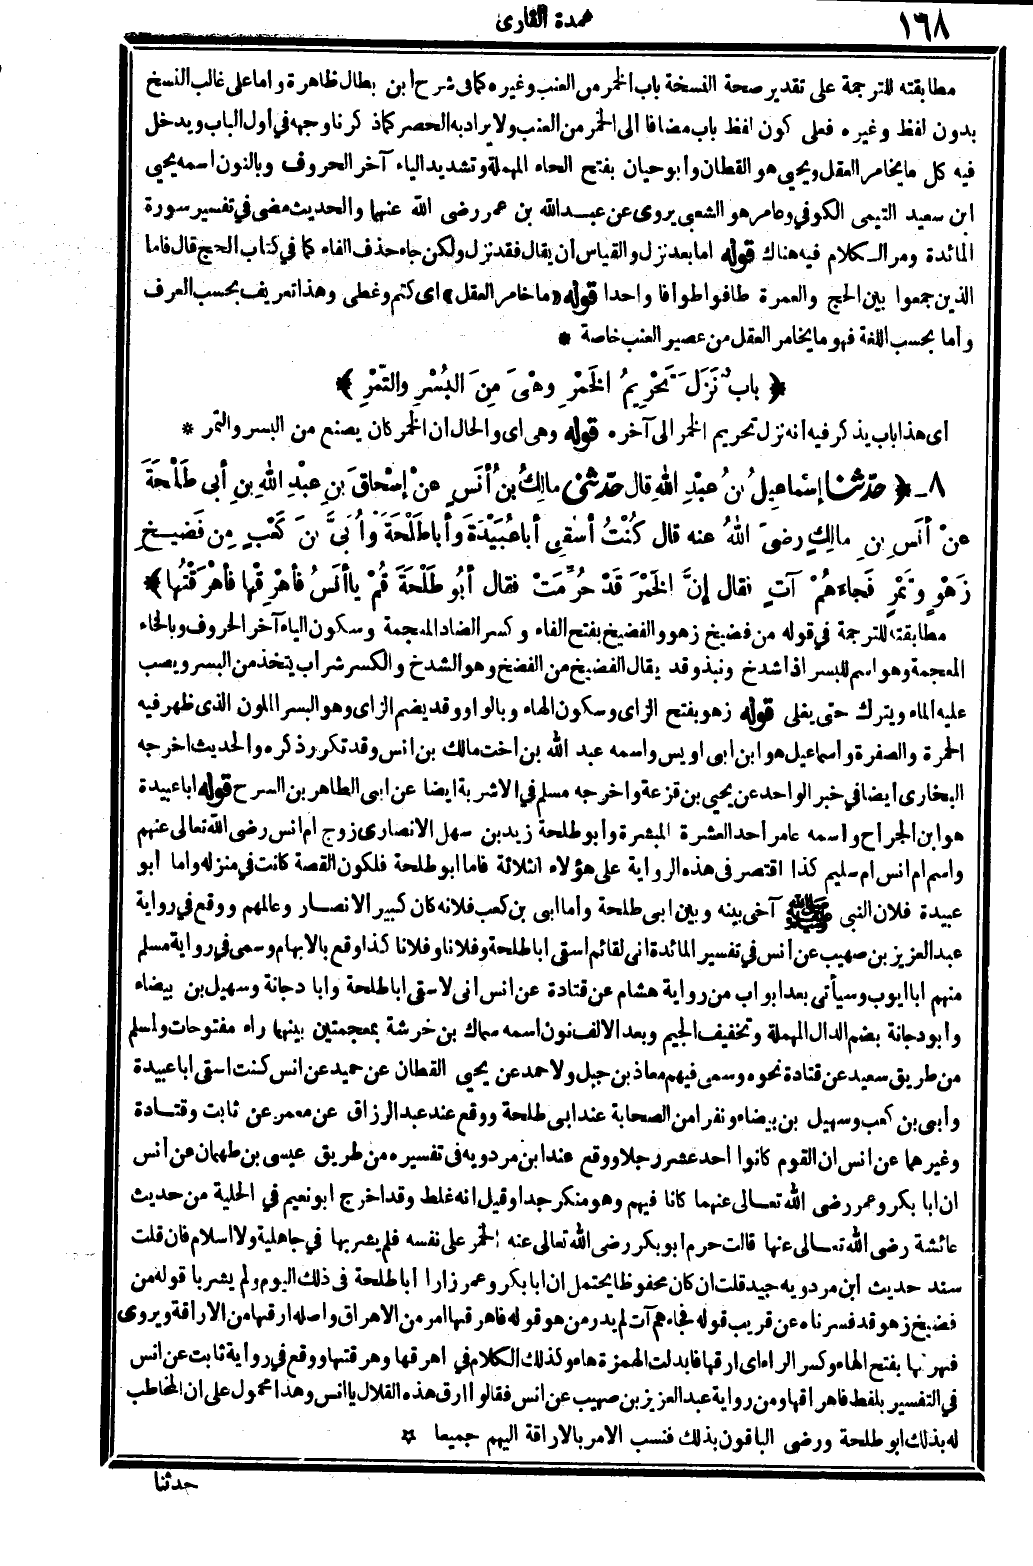 ١٦٨
عمدة القارى
مطابقته للترجمة على تقدير صحة النسخة باب الخمر من العنب وغيره كما فى شرح ابن بطال ظاهرة واما على غالب النسخ
بدون لفظ وغيره فعلى كون لفظ باب مضافا الى الخمر من العنب ولا يراد به الحصر كما ذكرنا وجهه في أول الباب ويدخل
فيه كل ما يخامر العقل ويحيى هو القطان وأبو حيان بفتح الحاء المهملة وتشديد الياء آخر الحروف وبالنون اسمه يحيى
ابن سعيد التيمى الكوفي وعامر هو الشعبى يروى عن عبد الله بن عمر رضى الله عنهما والحديث مضى في تفسير سورة
المائدة ومر الكلام فيه هناك قوله اما بعد نزل والقياس أن يقال فقد نزل ولكن جاء حذف الفاء كما في كتاب الحج قال فاما
الذين جمعوا بين الحج والعمرة طافوا طوافا واحدا قوله «ما خامر العقل» اى كتم وغطى وهذا تعريف بحسب العرف
وأما بحسب اللغة فهو ما يخامر العقل من عصير العنب خاصة *
﴿ بابٌ نَزَلَ تَحْرِيمُ الخَمْرِ وهْىَ مِنَ البُسْرِ والتَّمْرِ ﴾
اى هذا باب يذكر فيه انه نزل تحريم الخمر الى آخره قوله وهى اى والحال ان الخمر كان يصنع من البسر والتمر *
٨ - ﴿ حدّثنا إسْماعِيلُ بنُ عبْدِ اللهِ قال حدّثنى مالِكُ بنُ أنَسٍ عنْ إسْحاقَ بنِ عبْدِ اللهِ بنِ أبى طَلْحَةَ
عنْ أنَسِ بنِ مالِكٍ رضىَ اللهُ عنه قال كُنْتُ أسْقى أباعُبَيْدَةَ وأباطَلْحَةَ وأُبَيَّ بنَ كَعْبٍ مِن فَضِيخِ
زَهْوٍ وتَمْرٍ فَجاءَهُمْ آتٍ فقال إنَّ الخَمْرَ قَدْ حُرِّمَتْ فقال أبُو طَلْحَةَ قُمْ ياأنَسُ فأهْرِقْها فأهْرَقْتُها ﴾
مطابقته للترجمة في قوله من فضيخ زهو والفضيخ بفتح الفاء وكسر الضاد المعجمة وسكون الياء آخر الحروف وبالخاء
المعجمة وهو اسم للبسر اذا شدخ ونبذ وقد يقال الفضيخ من الفضخ وهو الشدخ والكسر شراب يتخذ من البسر ويصب
عليه الماء ويترك حتى يغلى قوله زهو بفتح الزاى وسكون الهاء وبالواو وقد يضم الزاى وهو البسر الملون الذى ظهر فيه
الحمرة والصفرة واسماعيل هو ابن ابى اويس واسمه عبد الله بن أخت مالك بن انس وقد تكرر ذكره والحديث اخرجه
البخارى أيضا في خبر الواحد عن يحيى بن قزعة واخرجه مسلم في الاشربة ايضا عن ابى الطاهر بن السرح قوله اباعبيدة
هو ابن الجراح واسمه عامر أحد العشرة المبشرة وأبو طلحة زيد بن سهل الانصارى زوج ام انس رضى الله تعالى عنهم
واسم ام انس ام سليم كذا اقتصر فى هذه الرواية على هؤلاء الثلاثة فاما ابو طلحة فلكون القصة كانت في منزله واما ابو
عبيدة فلان النبى ﷺ آخى بينه وبين ابى طلحة واما ابى بن كعب فلانه كان كبير الانصار وعالمهم ووقع في رواية
عبد العزيز بن صهيب عن أنس في تفسير المائدة انى لقائم اسقى اباطلحة وفلانا وفلانا كذا وقع بالابهام وسمى في رواية مسلم
منهم اباايوب وسيأتى بعد ابواب من رواية هشام عن قتادة عن انس انى لاسقى اباطلحة وابا دجانة وسهيل بن بيضاء
وابو دجانة بضم الدال المهملة وتخفيف الجيم وبعد الالف نون اسمه سماك بن خرشة بمعجمتين بينهما راء مفتوحات ولمسلم
من طريق سعيد عن قتادة نحوه وسمى فيهم معاذ بن جبل ولاحمد عن يحيى القطان عن حميد عن انس كنت اسقى اباعبيدة
وأبى بن كعب وسهيل بن بيضاء ونفرا من الصحابة عند ابى طلحة ووقع عند عبد الرزاق عن معمر عن ثابت وقتادة
وغيرهما عن انس ان القوم كانوا احد عشر رجلا ووقع عند ابن مردويه فى تفسيره من طريق عيسى بن طهمان عن أنس
ان ابا بكر وعمر رضى الله تعالى عنهما كانا فيهم وهو منكر جدا وقيل انه غلط وقد اخرج ابو نعيم في الحلية من حديث
عائشة رضى الله تعالى عنها قالت حرم ابو بكر رضى الله تعالى عنه الخمر على نفسه فلم يشربها في جاهلية ولا اسلام فان قلت
سند حديث ابن مردويه جيد قلت ان كان محفوظا يحتمل ان ابابكر وعمر زارا اباطلحة فى ذلك اليوم ولم يشربا قوله من
فضيخ زهو قد فسرناه عن قريب قوله فجاءهم آت لم يدر من هو قوله فاهرقها امر من الاهراق واصله ارقها من الاراقة ويروى
فهرقها بفتح الهاء وكسر الراء اى ارقها فابدلت الهمزة هاء وكذلك الكلام في اهرقها وهرقتها ووقع في رواية ثابت عن انس
في التفسير بلفظ فاهراقها ومن رواية عبد العزيز بن صهيب عن انس فقالوا ارق هذه القلال ياانس وهذا محمول على ان المخاطب
له بذلك ابو طلحة ورضى الباقون بذلك فنسب الامر بالاراقة اليهم جميعا *
حدثنا